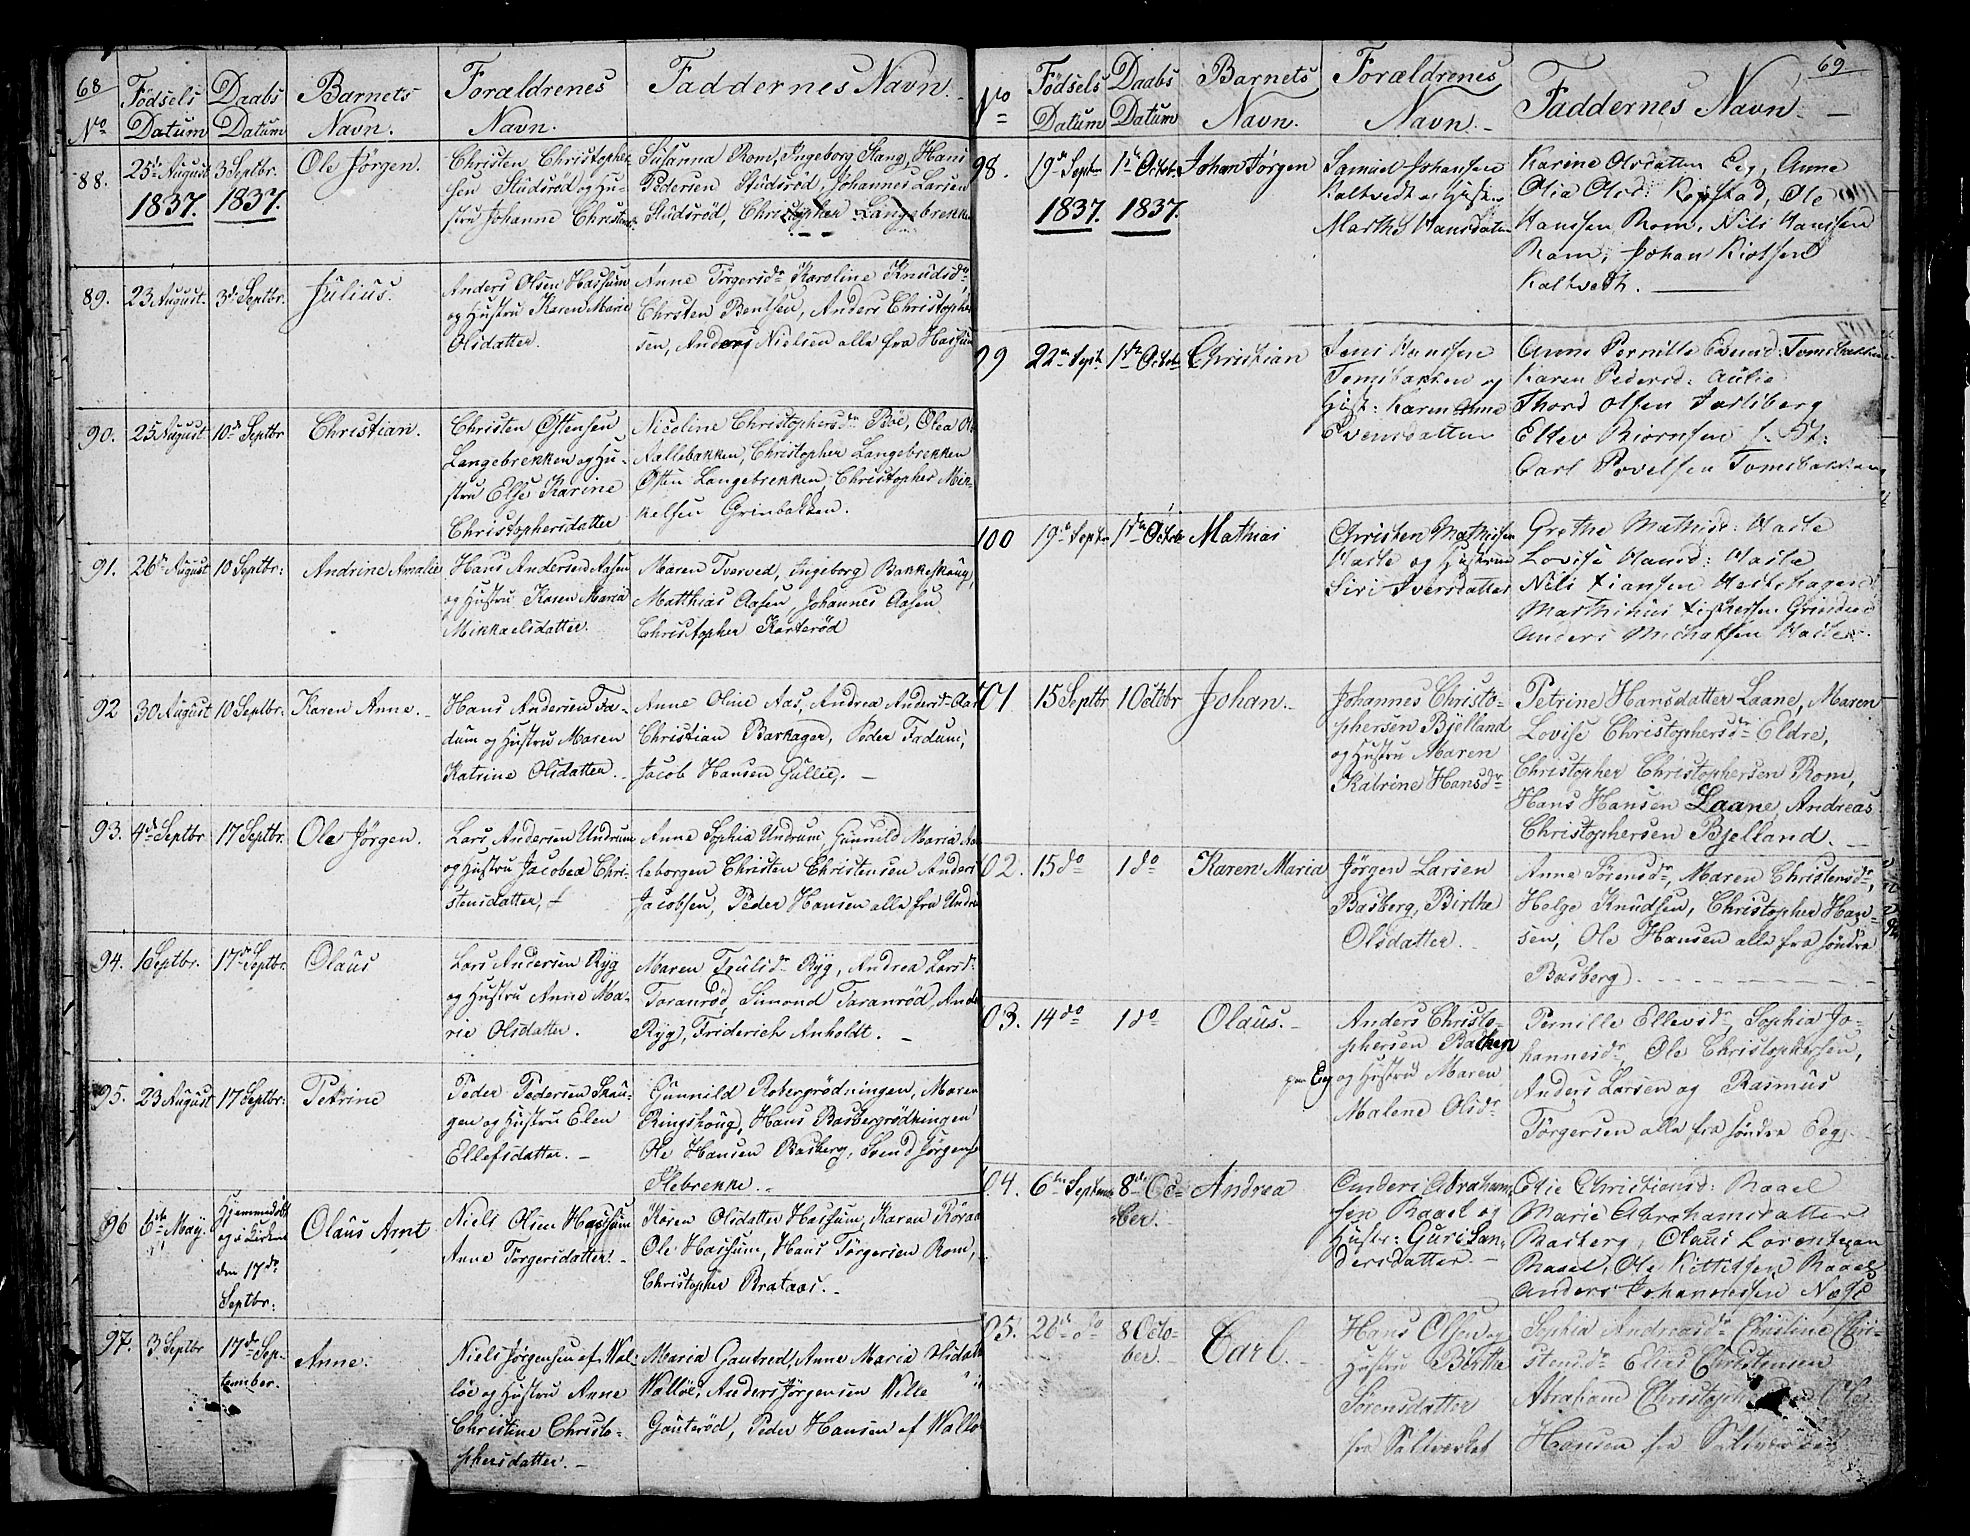 68
No
Födsels Datum
Daabs Datum
Barnets Navn.
Forældrenes Navn.
Faddernes Navn.
88.
25de August
1837.
3 Septbr.
1837.
Ole Jörgen.
Christen Christopher-
sen Studsröd og Hu-
stru Johanne Christens
Susanna Rom, Ingeborg Stang, Hans
Pedersen Studsröd, Johannes Larsen
Studsröd, Christopher Langebrekke
89.
23 August.
3de Septbr.
Julius.
Anders Olsen Hassum
og Hustru Karen Marie
Olsdatter.
Anne Törgersdr Karoline Knudsdr
Chrsten Bentsen, Anders Christopher
sen, Anders Nielsen alle fra Hassum
90.
25 August
10de Septbr
Christian.
Christen Östensen
Langebrekken og Hu-
stru Else Karine
Christophersdatter
Nicoline Christophersdr Böe, Olea Ol
Nallebakken, Christopher Langebrekken
Östen Langebrekken, Christopher Mik-
kelsen Grinbakken.
91.
26de August
10 Septbr:
Andrine Amalie
Hans Andersen Aasen
og Hustru Karen Maria
Mikkaelsdatter.
Maren Tverved, Ingeborg Bakkeskoug,
Matthias Aasen, Johannes Aasen
Christopher Korteröd
92
30 August
10 Septbr:
Karen Anne.
Hans Andersen Fa-
dum og Hustru Maren
Katrine Olsdatter.
Anne Oline Aas, Andrea Andersd Aas
Christian Barkager, Peder Fadum,
Jacob Hansen Gullie. —
93.
4de Septbr
17 Septbr.
Ole Jörgen.
Lars Andersen Undrum
og Hustru Jacobea Chri-
stensdatter,
Anne Sophia Undrum, Gunnild Maria Aa
leborgen Christen Christensen Anders
Jacobsen, Peder Hansen alle fra Undru
94.
1 Septbr.
17de Septbr.
Olaus
Lars Andersen Ryg
og Hustru Anne Ma-
rie Olsdatter.
Maren Trulsdr Ryg, Andrea Larsdr:
Taranröd, Simond Taranröd, Ande
Ryg, Friderich Anholdt. —
95.
23 August
17 Septbr:
Petrine
Peder Pedersen Skau-
gen og Hustru Elen
Ellefsdatter. —
Gunnild Robergrödningen, Maren
Ringshoug, Hans Basbergrödningen
Ole Hansen Basberg, Svend Jörgens
Klebrekke.
96
6te May.
Hjemmedöbt
og i Kirken
den 17de
Septbr:
Olaus Arnt
Niels Olsen Hassum
Anne Törgersdatter.
Karen Olsdatter Hassum, Karen Röraas
Ole Hassum, Hans Törgersen Rom,
Christopher Brataas.
97.
3 Septbr
17de Sep-
tember.
Anne.
Niels Jörgensen af Wal-
löe og Hustru Anne
Christine Christo-
phersdatter. —
Maria Gauteröd, Anne Maria
Walløe, Anders Jörgensen Wille
Gauteröd, Peder Hansen af Wallö
69
No
Födsels Datum
Daabs Datum
Barnets Navn.
Forældrenes Navn. —
Faddernes Navn. —
98.
19de Septr
1837.
1ste Octob.
1837.
Johan Jørgen
Samuel Johansen
Kaltvedt og Hustru
Marthe Hansdatter
Karine Olsdatter Eeg, Anne
Olia Olsd: Ramstad, Ole
Hanssen Rom, Nils Hanssen
Rom, Johan
Kaltvedt.
99
22de Sept.
1ste Octob
Christian
Jens Hanssen
Tomsbakken og
Hust: Karen Anne
Evensdatter
Anne Pernille Evensd: Tomsbakken
Karen Pedersd: Aulie
Thord Olsen Jarlsberg
Ellev Biørnsen
Carl Povelsen Tomsbakken
100
19de Septr
1ste Octob
Mathias
Christen Mathisen
Hasle og Hustrue
Siri Iversdatter
Grethe Mathisd: Hasle
Lovise Hansd: Hasle
Nils
Marthinus
Anders Michalsen Hasle.
101
15 Septbr
1 Octobr
Johan.
Johannes Christo-
phersen Bjelland
og Hustru Maren
Katrine Hansdr
Petrine Hansdatter Laane, Maren
Lovise Christophersdr Eldre,
Christopher Christophersen Rom,
Hans Hansen Laane Andreas
Christophersen Bjelland. —
02.
15 do
1 do
Karen Maria
Jörgen Larsen
Basberg, Birthe
Olsdatter.
Anne Sörensdr, Maren Christensdr,
Helge Knudsen, Christopher Han-
sen, Ole Hansen alle fra söndre
Basberg.
03.
14 do
1 do
Olaus.
Anders Christo-
phersen Bakken
paa Eeg og Hustru Maren
Malene Olsdr
Pernille Ellevsdr, Sophia Jo-
hannesdr, Ole Christophersen,
Anders Larsen og Rasmus
Törgersen alle fra söndre Eeg.
04.
6te Septembr
8de Oc-
ber.
Andrea
Anders Abraham-
sen Raael og
Hustr: Guri San-
dersdatter. —
Elie Christiansd: Raael
Marie Abrahamsdatter
Basberg, Olaus Lorentzen
Raael, Ole Kittilsen Raael
Anders Johannessen Næse
05.
26de do
8 Octo-
ber.
Carl.
Hans Olsen og
Hustru Birthe
Sörensdatter
fra Saltverket
Sophia Andreasdr Christine Chri-
stensdr Elias Christensen
Abraham
Hansen fra Saltverket